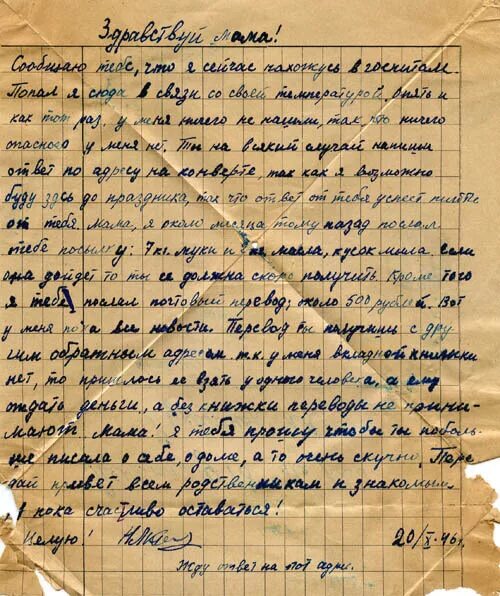 Здравствуй мама!
Сообщаю тебе, что я сейчас нахожусь в госпитале.
Попал я сюда в связи со своей температурой. Опять и
как тот раз, у меня ничего не нашли, так что ничего
опасного у меня нет. Ты на всякий случай напиши
ответ по адресу на конверте, так как я возможно
буду здсь до праздника, так что ответ от тебя успест
от тебя. Мама, я около месяца тому назад послал
тебе посылку: 7 кг. муки и масла, кусок мыла. если
она дойдет то ты ее должна скоро получить. Кроме того
я тебе послал почтовый перевод; около 500 рублей. Вот
у меня пока все новости. Перевод ты получишь с дру
гим обратным адресом т.к. у меня вкладной книжки
нет, то пришлось ее взять у одного человека, а ему
отдать деньги, а без книжки переводы не прини-
мают. Мама! я тебя прошу чтобы ты поболь-
ше писала о себе, о доме, а то очень скучно. Пере
дай привет всем родственникам и знакомым.
А пока счастливо оставаться!
Целую!
20/X-46г.
Жду ответ на тот адрес.